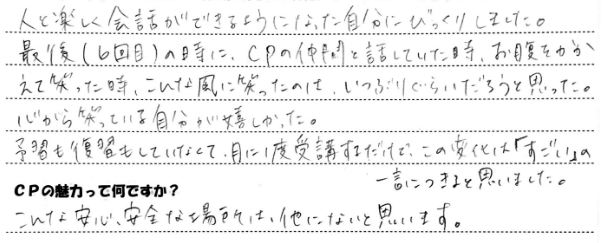 人と楽しく会話ができるようになった自分にびっくりしました。
最後(6回目)の時に、CPの仲間と話していた時、お腹をかか
えて笑った時、こんな風に笑ったのは、いつぶりぐらいだろうと思った。
心から笑っている自分が嬉しかった。
予習も復習もしていなくて、月に1度受講するだけで、この変化は「すごい」の
一言につきると思いました。
CPの魅力って何ですか？
こんな安心、安全な場所は、他にないと思います。